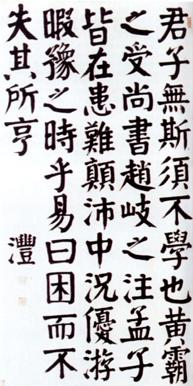 君子無斯須不學也黃霸
之受尚書趙岐之注孟子
皆在患難顛沛中況優游
暇豫之時乎易曰困而不
失其所亨
灃